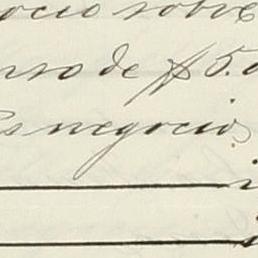 ocio sobre
nso de $5.0
s negocio
i
i